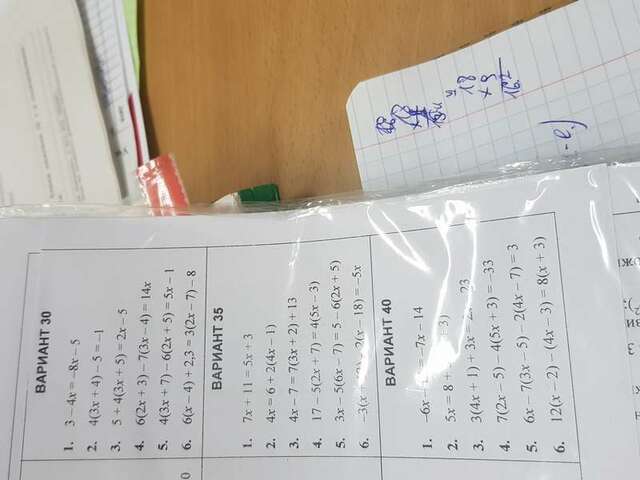 ВАРИАНТ 30
1. 3 – 4x = –8x – 5
2. 4(3x + 4) – 5 = –1
3. 5 + 4(3x + 5) = 2x – 5
4. 6(2x + 3) – 7(3x – 4) = 14x
5. 4(3x + 7) – 6(2x + 5) = 5x – 1
6. 6(x – 4) + 2,3 = 3(2x – 7) – 8
ВАРИАНТ 35
1. 7x + 11 = 5x + 3
2. 4x = 6 + 2(4x – 1)
3. 4x – 7 = 7(3x + 2) + 13
4. 17 – 5(2x + 7) = 4(5x – 3)
5. 3x – 5(6x – 7) = 5 – 6(2x + 5)
6. –3(x – 2(x – 18) = –5x
ВАРИАНТ 40
1. –6x – = –7x – 14
2. 5x = 8 + + 3)
3. 3(4x + 1) + 3x = 23
4. 7(2x – 5) – 4(5x + 3) = –33
5. 6x – 7(3x – 5) – 2(4x – 7) = 3
6. 12(x – 2) – (4x – 3) = 8(x + 3)
18
x 9
162